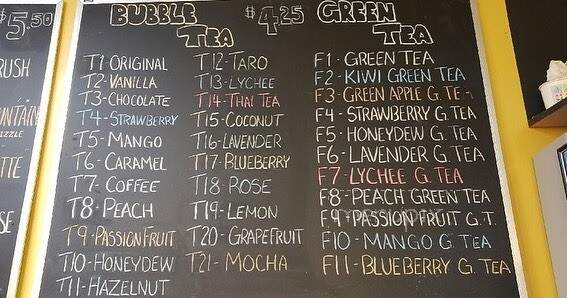 $5.50
RUSH
UNTAIN
ZZLE
TTE
SE
BUBBLE
TEA
$4.25
T1-ORIGINAL
T2-VANILLA
T3-CHOCOLATE
T4-STRAWBERRY
T5-MANGO
T6-CARAMEL
T7-COFFEE
T8-PEACH
T9-PASSIONFRUIT
T10-HONEYDEW
T11-HAZELNUT
T12-TARO
T13-LYCHEE
T14-THAI TEA
T15-COCONUT
T16-LAVENDER
T17-BLUEBERRY
T18-ROSE
T19-LEMON
T20-GRAPEFRUIT
T21-MOCHA
GREEN
TEA
F1-GREEN TEA
F2-KIWI GREEN TEA
F3-GREEN APPLE G. TE
F4-STRAWBERRY G. TEA
F5-HONEYDEW G. TEA
F6-LAVENDER G. TEA
F7-LYCHEE G. TEA
F8-PEACH GREEN TEA
F9-PASSION FRUIT G.T.
F10-MANGO G. TEA
F11-BLUEBERRY G. TEA